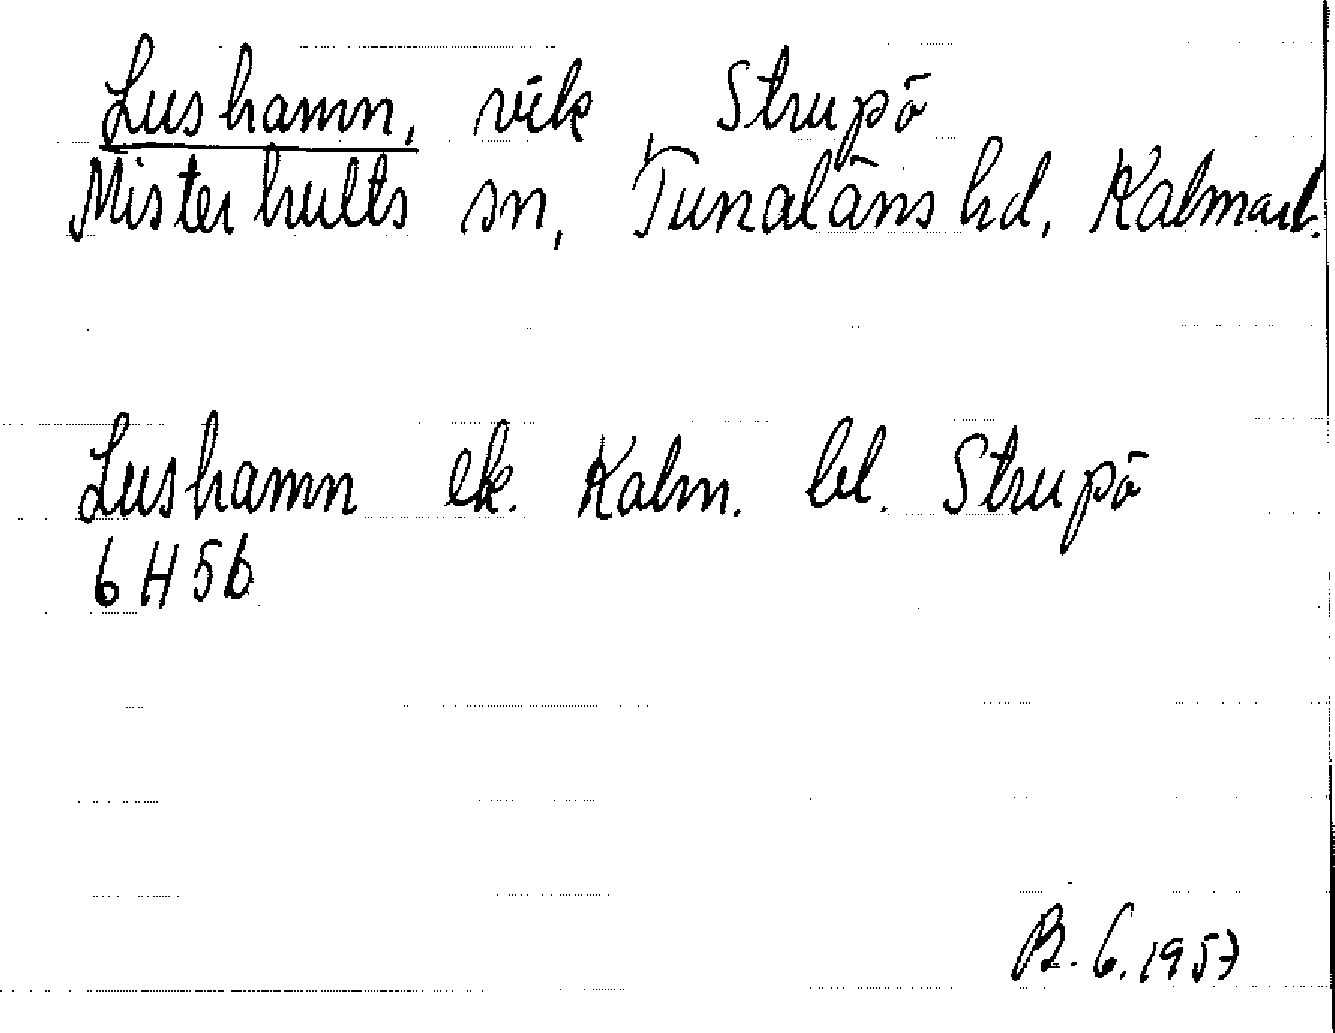 Lushamn, vik Strupö
Misterhults sn, Tunaläns hd, Kalmar l.
Lushamn ek. Kalm. bl. Strupö
6H5b
B. G. 1957